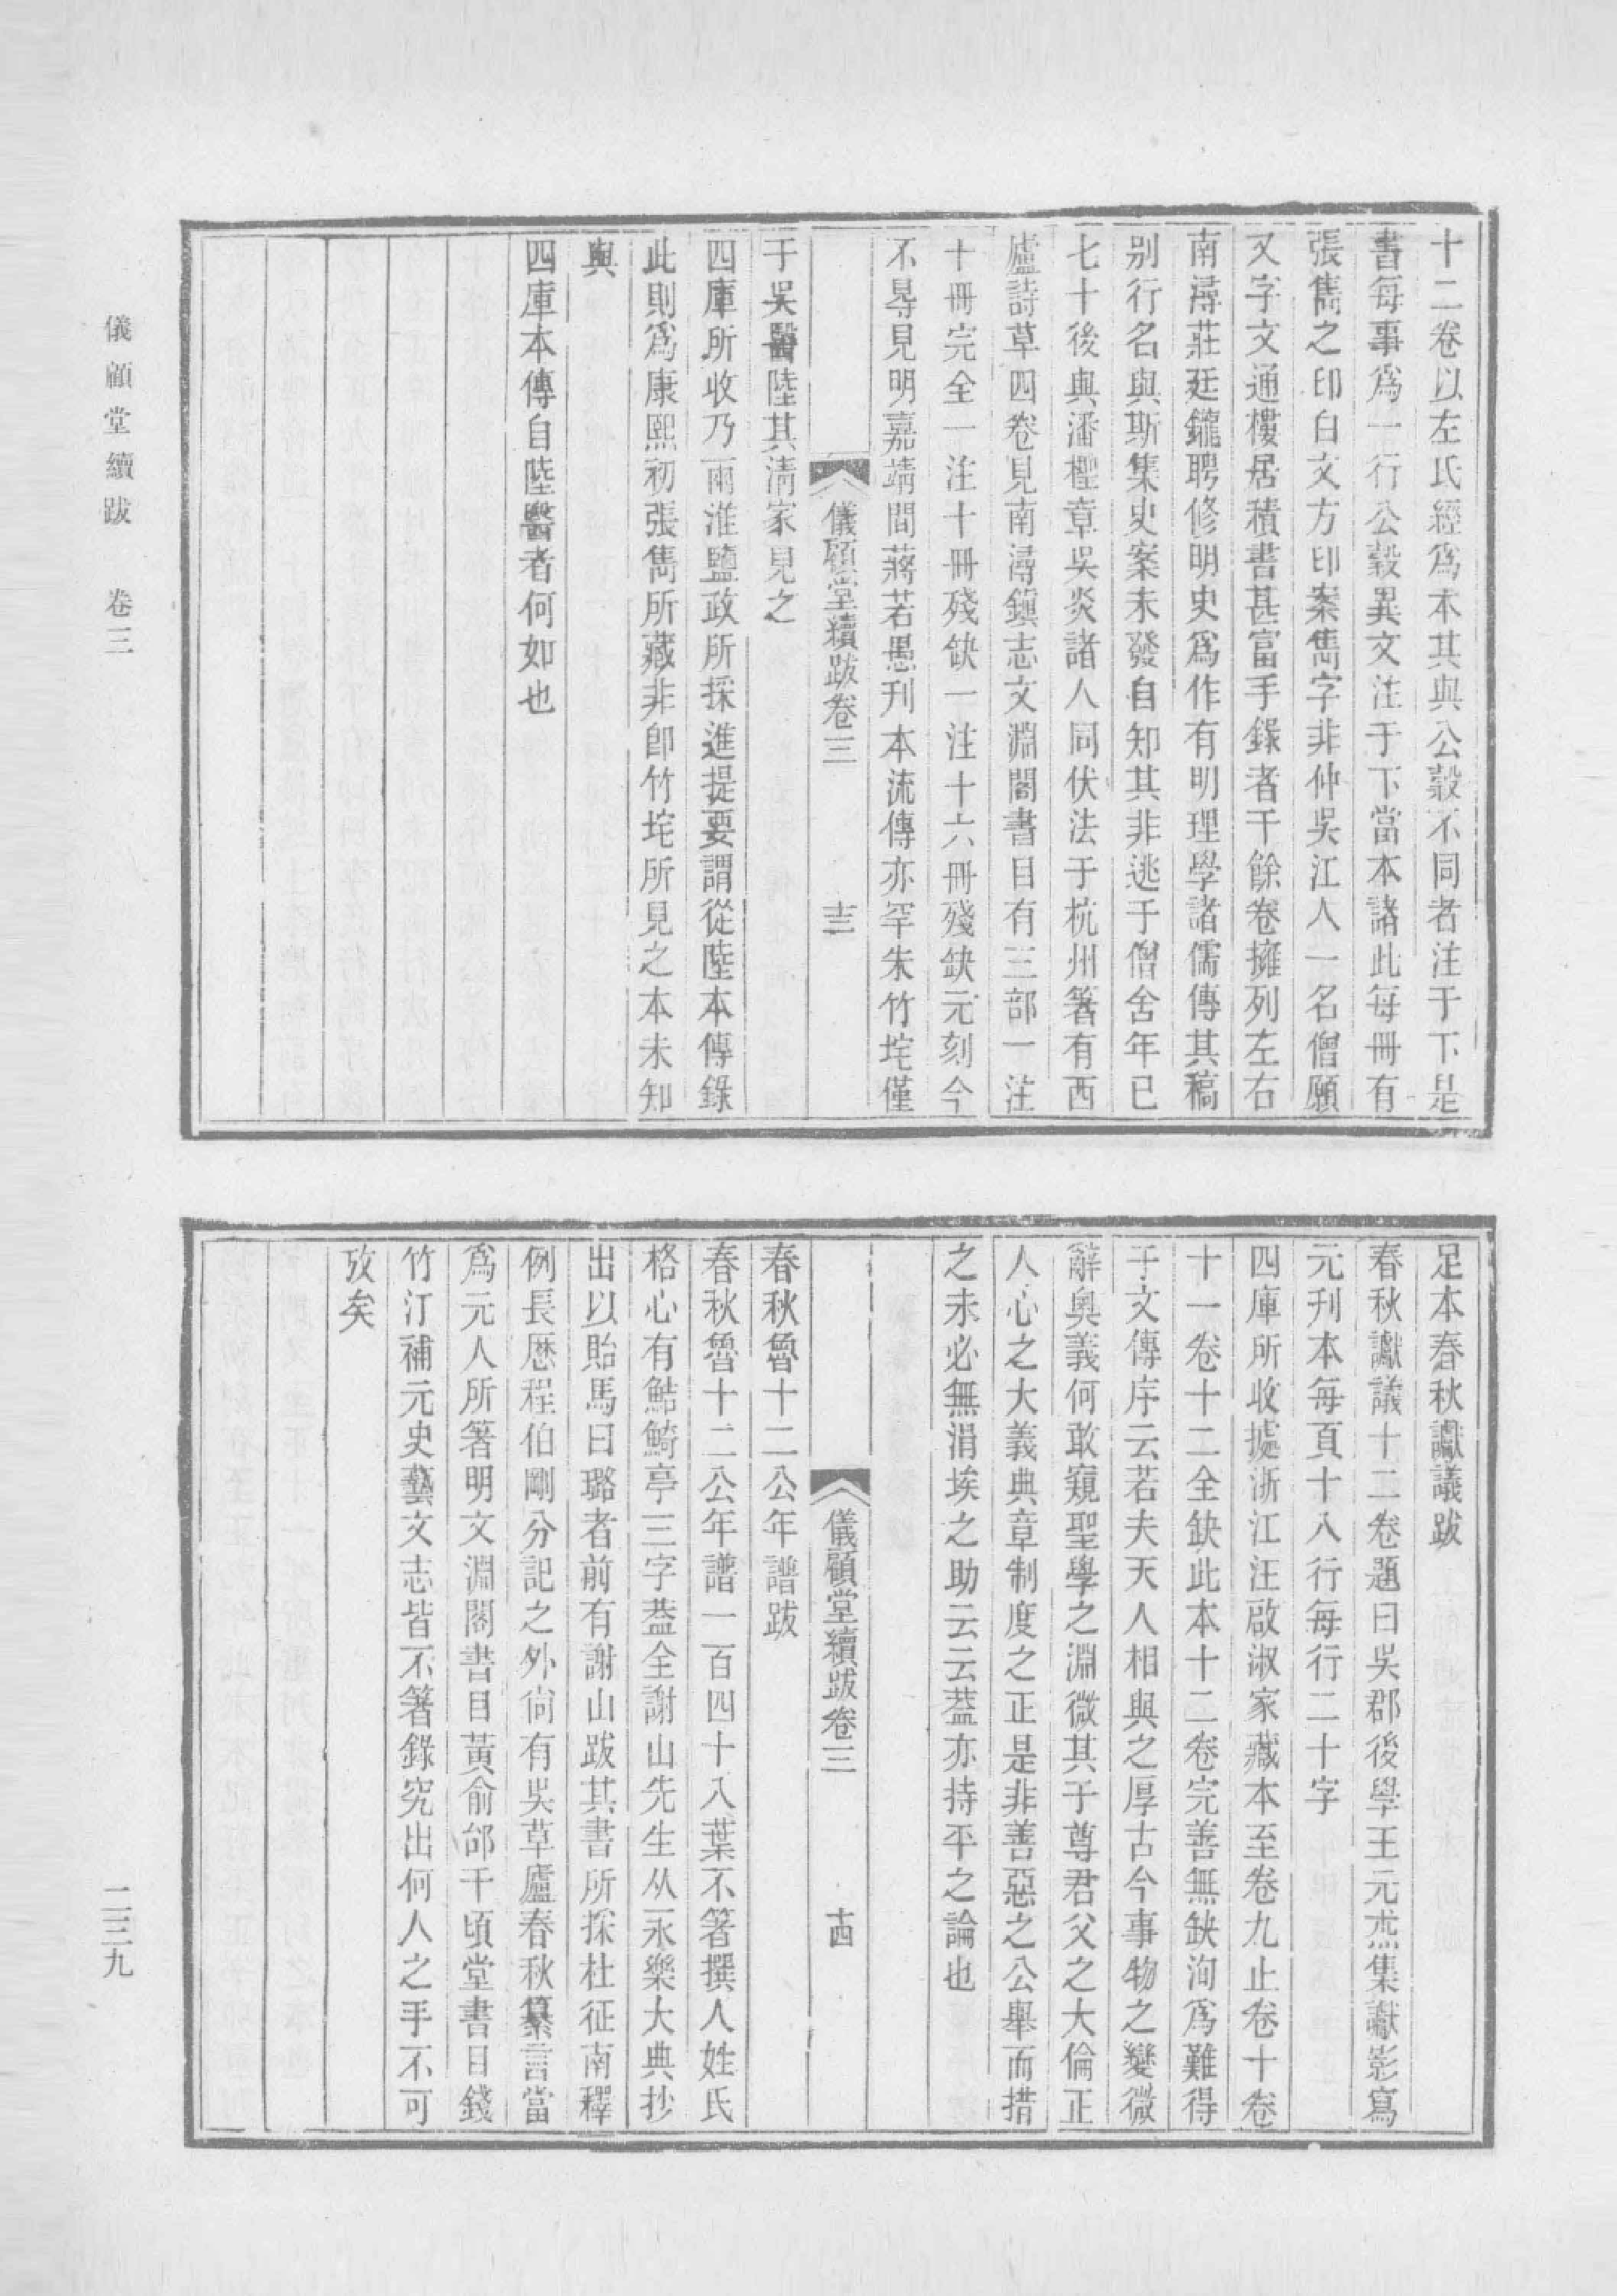 十二卷以左氏經爲本其與公穀不同者注于下是
書每事爲一行公穀異文注于下當本諸此每冊有
張雋之印白文方印案雋字非仲吳江人一名僧願
又字文通樓居積書甚富手錄者千餘卷擁列左右
南潯莊廷鑨聘修明史爲作有明理學諸儒傳其稿
别行名與斯集史案未發自知其非逃于僧舍年已
七十後與潘檉章吳炎諸人同伏法于杭州箸有西
廬詩草四卷見南潯鎮志文淵閣書目有三部一注
十冊完全一注十冊殘缺一注十六冊殘缺元刻今
不㝵見明嘉靖間蔣若愚刊本流傳亦罕朱竹垞僅
儀顧堂續跋卷三 十三
于吳醫陸其清家見之
四庫所收乃兩淮鹽政所採進提要謂從陸本傳錄
此則爲康熙初張雋所藏非卽竹垞所見之本未知
與
四庫本傳自陸醫者何如也
足本春秋讞議跋
春秋讞議十二卷題曰吳郡後學王元杰集讞影寫
元刊本每頁十八行每行二十字
四庫所收據浙江汪啟淑家藏本至卷九止卷十卷
十一卷十二全缺此本十二卷完善無缺洵爲難得
干文傳序云若夫天人相與之厚古今事物之變微
辭奧義何敢窺聖學之淵微其于尊君父之大倫正
人心之大義典章制度之正是非善惡之公舉而措
之未必無涓埃之助云云葢亦持平之論也
儀顧堂續跋卷三 十四
春秋魯十二公年譜跋
春秋魯十二公年譜一百四十八葉不箸撰人姓氏
格心有鮚鮚亭三字葢全謝山先生从永樂大典抄
出以貽馬曰璐者前有謝山跋其書所採杜征南釋
例長厯程伯剛分記之外尙有吳草廬春秋纂言當
爲元人所箸明文淵閣書目黃俞邰千頃堂書目錢
竹汀補元史藝文志皆不箸錄究出何人之手不可
攷矣
儀顧堂續跋 卷三
二三九